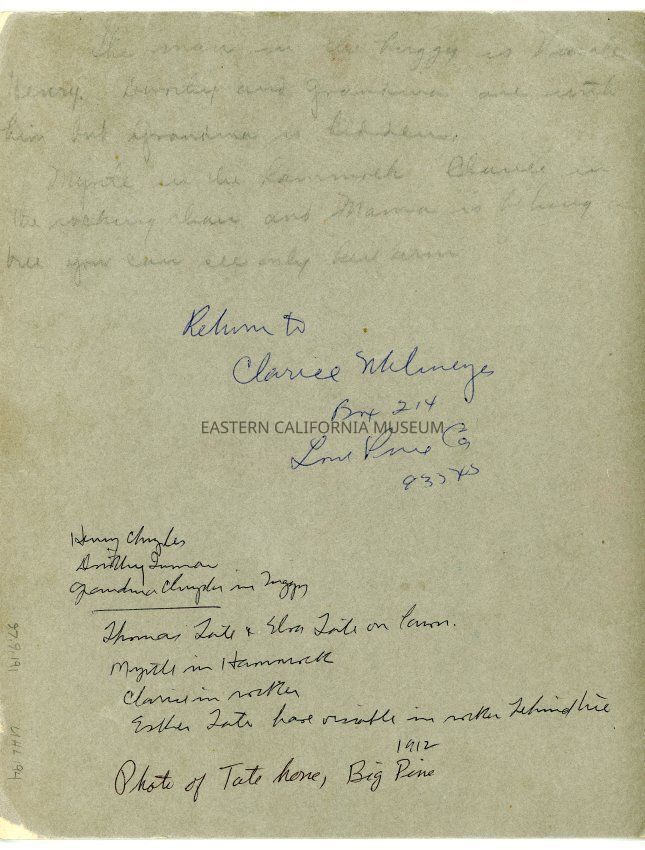 The man in the buggy is
Henry. Dorothy and Grandma are with
him but Grandma is hidden.
Myrtle in the hammock Clarice in
the rocking chair and Mama is behind
tree you can see only her arm
Return to
Clarice
Box 214
EASTERN CALIFORNIA MUSEUM
Lone Pine Ca
93545
Henry
Dorothy
Grandma in buggy
Thomas Tate & Elva Tate on lawn.
Myrtle in Hammock
Clarice in rocker
Esther Tate visible in rocker behind tree
1912
Photo of Tate home, Big Pine
97.9.191
UHL 94